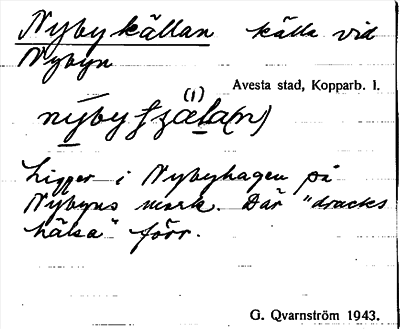 Nybykällan källa vid
Nybyn
Avesta stad, Kopparb. l.
Ligger i Nybyhagen på
Nybyns mark. Där "dracks
hälsa" förr.
G. Qvarnström 1943.